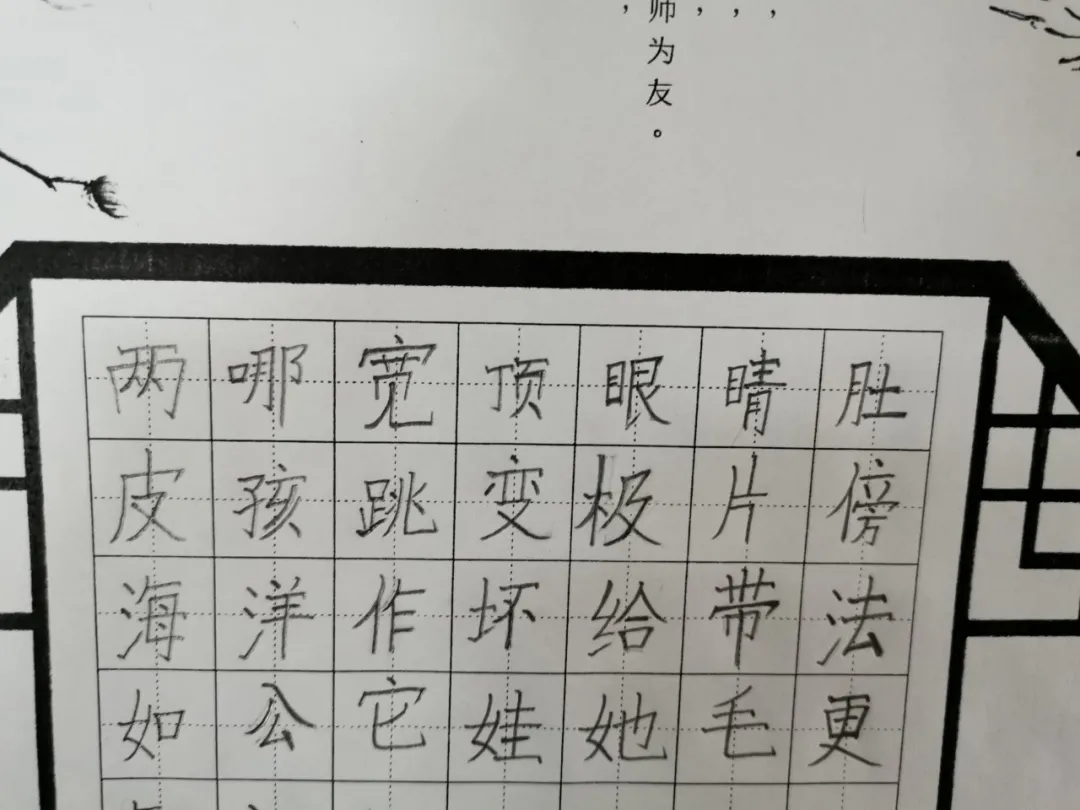 师为友。
两哪宽顶眼睛肚
皮孩跳变极片傍
海洋作坏给带法
如公它娃她毛更